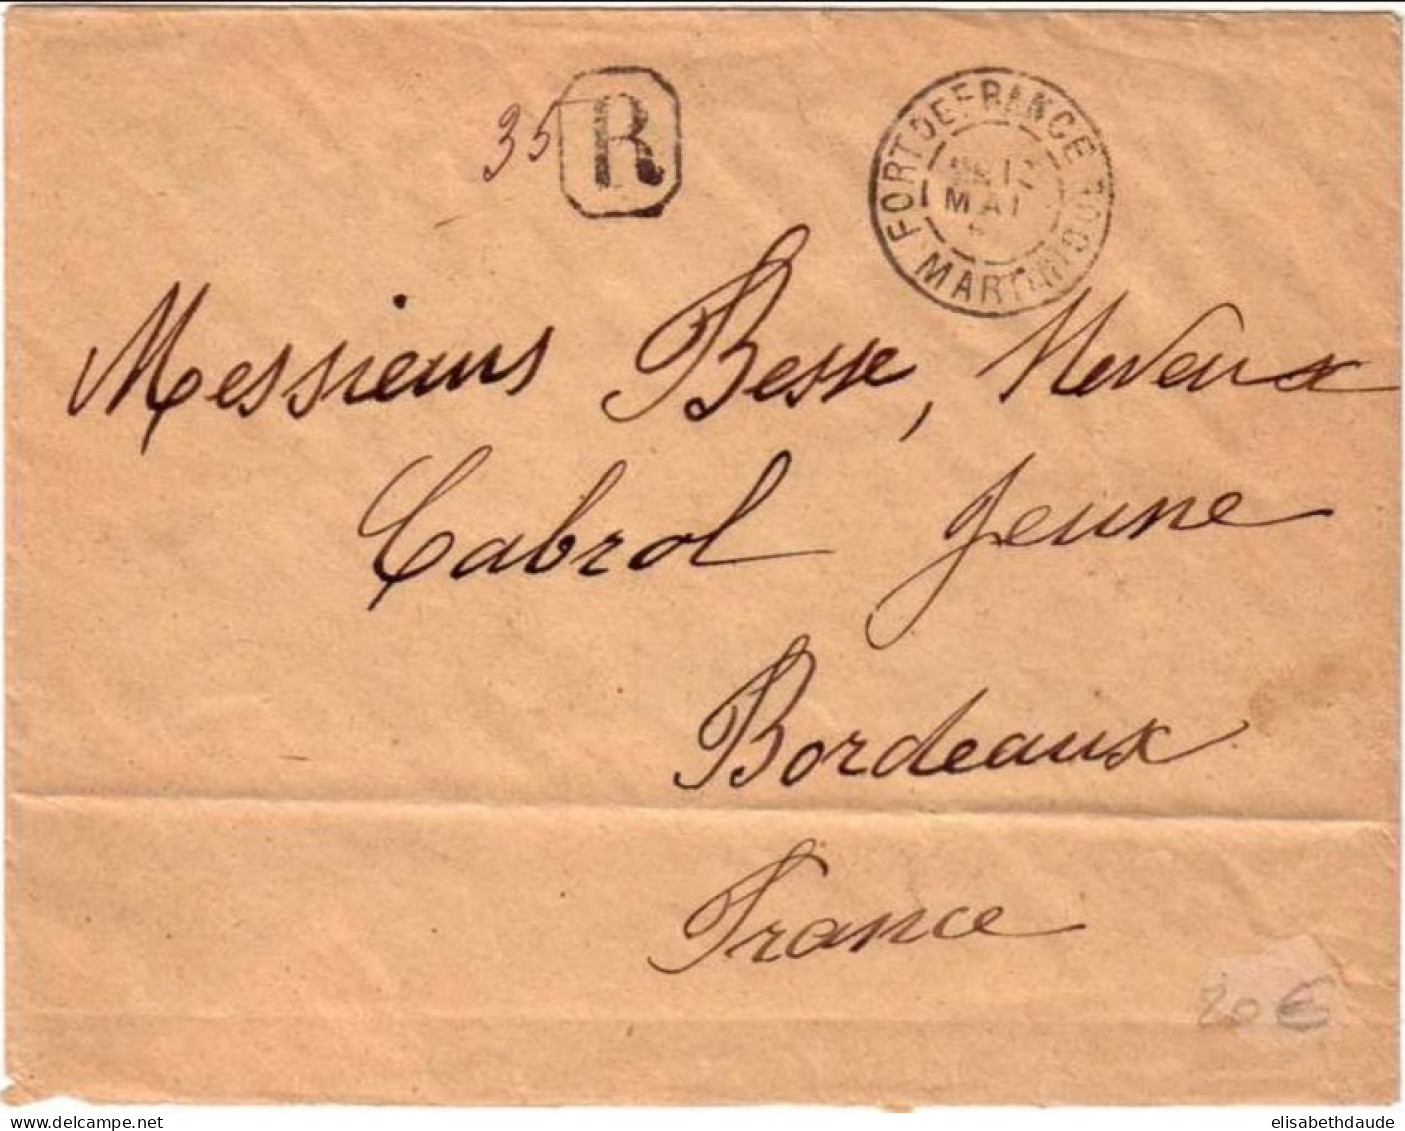 35 R
FORT DE FRANCE
MAI
MARTINIQUE
Messieurs Besse, Neveux
Cabrol Jeune
Bordeaux
France
20 €
www.delcampe.net
elisabethdaude